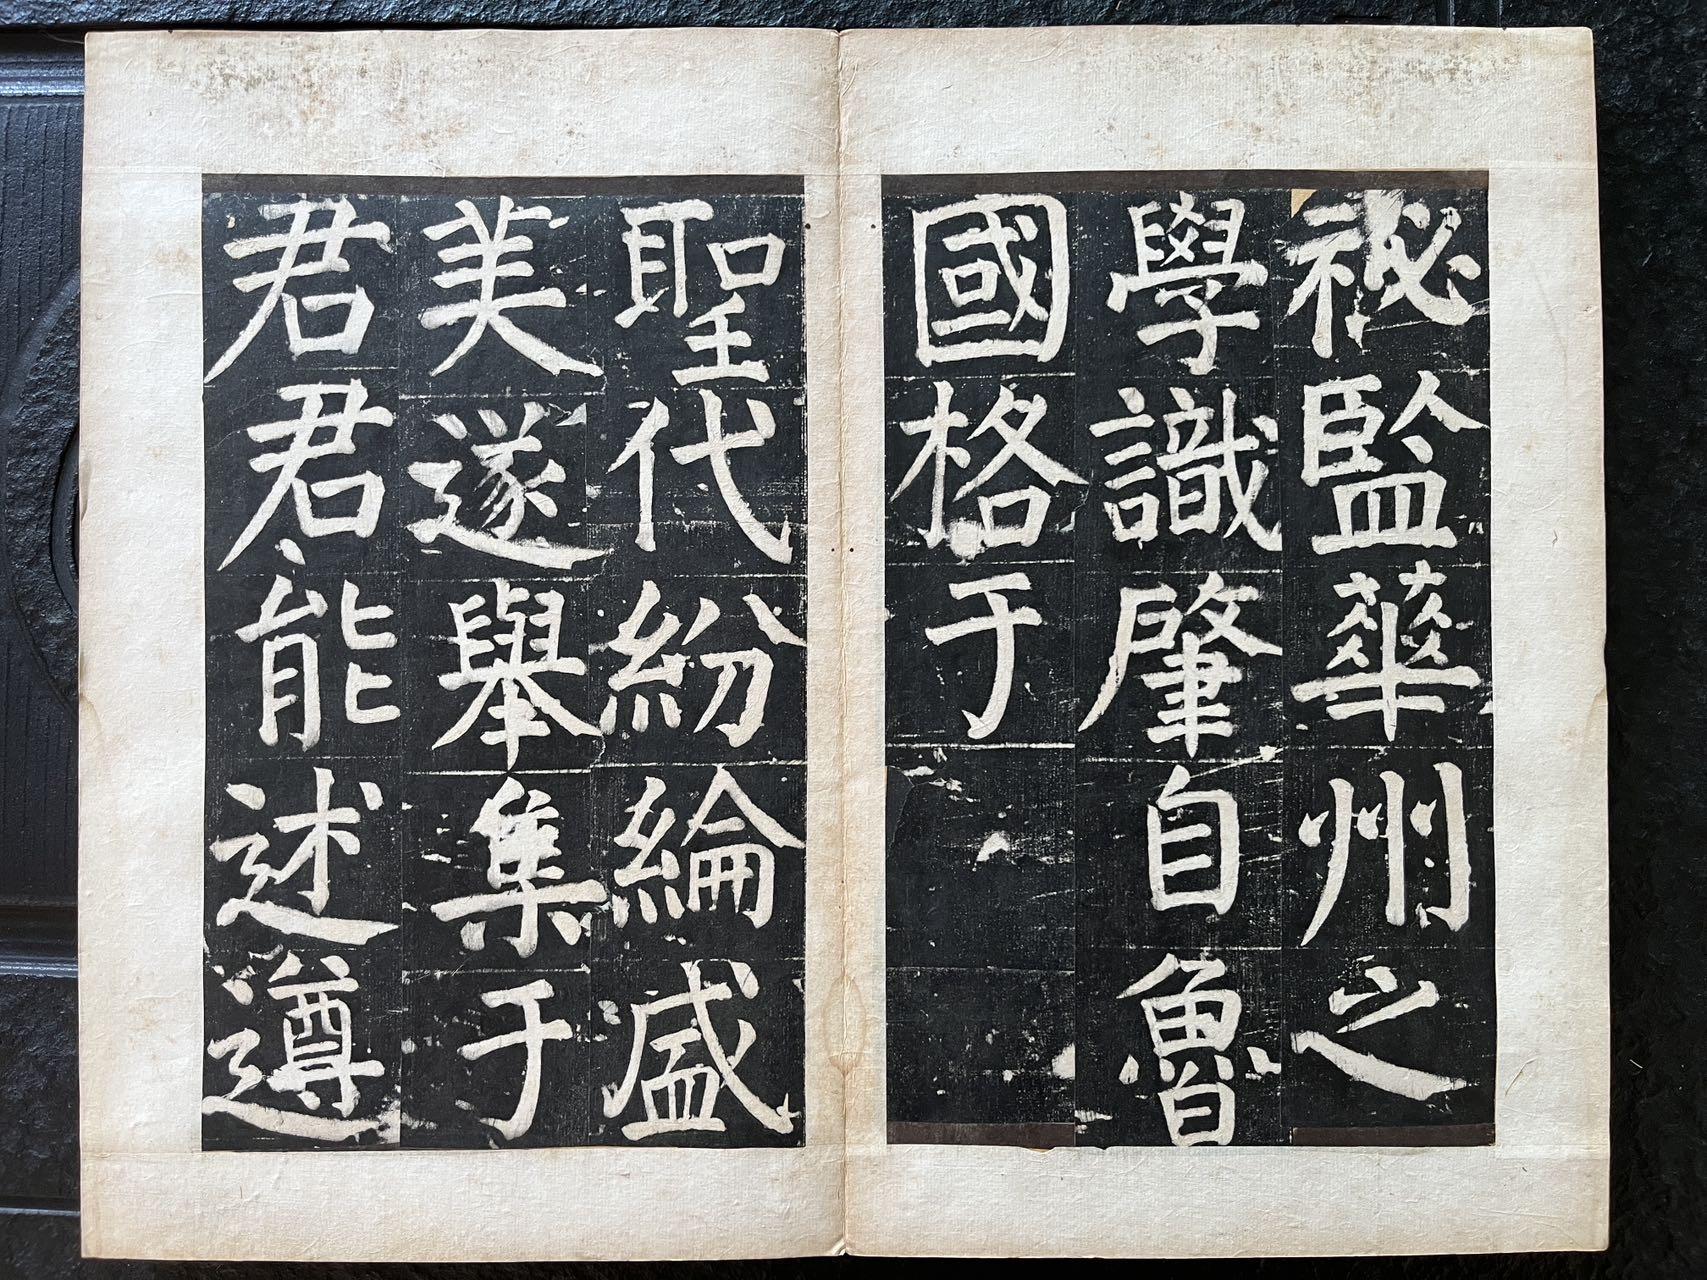 祕監華州之
學識肇自魯
國格于
聖代紛綸盛
美遂舉集于
君君能述遵